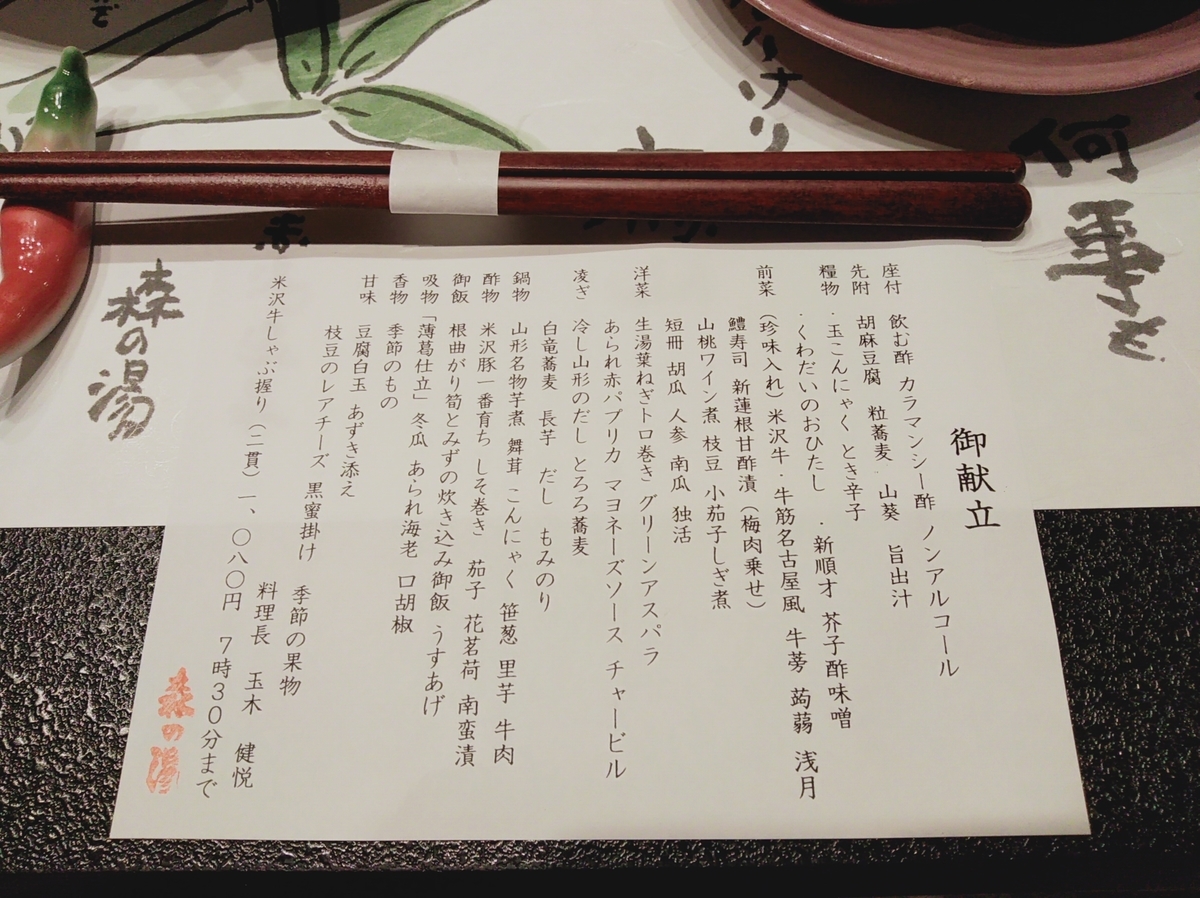 御献立
座付 飲む酢 カラマンシー酢 ノンアルコール
先附 胡麻豆腐 粒蕎麦 山葵 旨出汁
糧物 ・玉こんにゃく とき辛子
・くわだいのおひたし ・新順才 芥子酢味噌
前菜 (珍味入れ) 米沢牛・牛筋名古屋風 牛蒡 蒟蒻 浅月
鱧寿司 新蓮根甘酢漬(梅肉乗せ)
山桃ワイン煮 枝豆 小茄子しぎ煮
短冊 胡瓜 人参 南瓜 独活
洋菜 生湯葉ねぎトロ巻き グリーンアスパラ
あられ赤パプリカ マヨネーズソース チャービル
凌ぎ 冷し山形のだし とろろ蕎麦
白竜蕎麦 長芋 だし もみのり
鍋物 山形名物芋煮 舞茸 こんにゃく 笹葱 里芋 牛肉
酢物 米沢豚一番育ち しそ巻き 茄子 花茗荷 南蛮漬
御飯 根曲がり筍とみずの炊き込み御飯 うすあげ
吸物 「薄葛仕立」 冬瓜 あられ海老 口胡椒
香物 季節のもの
甘味 豆腐白玉 あずき添え
枝豆のレアチーズ 黒蜜掛け 季節の果物
料理長 玉木 健悦
米沢牛しゃぶ握り(二貫) 一、〇八〇円 7時30分まで
森の湯
森の湯
何
事を